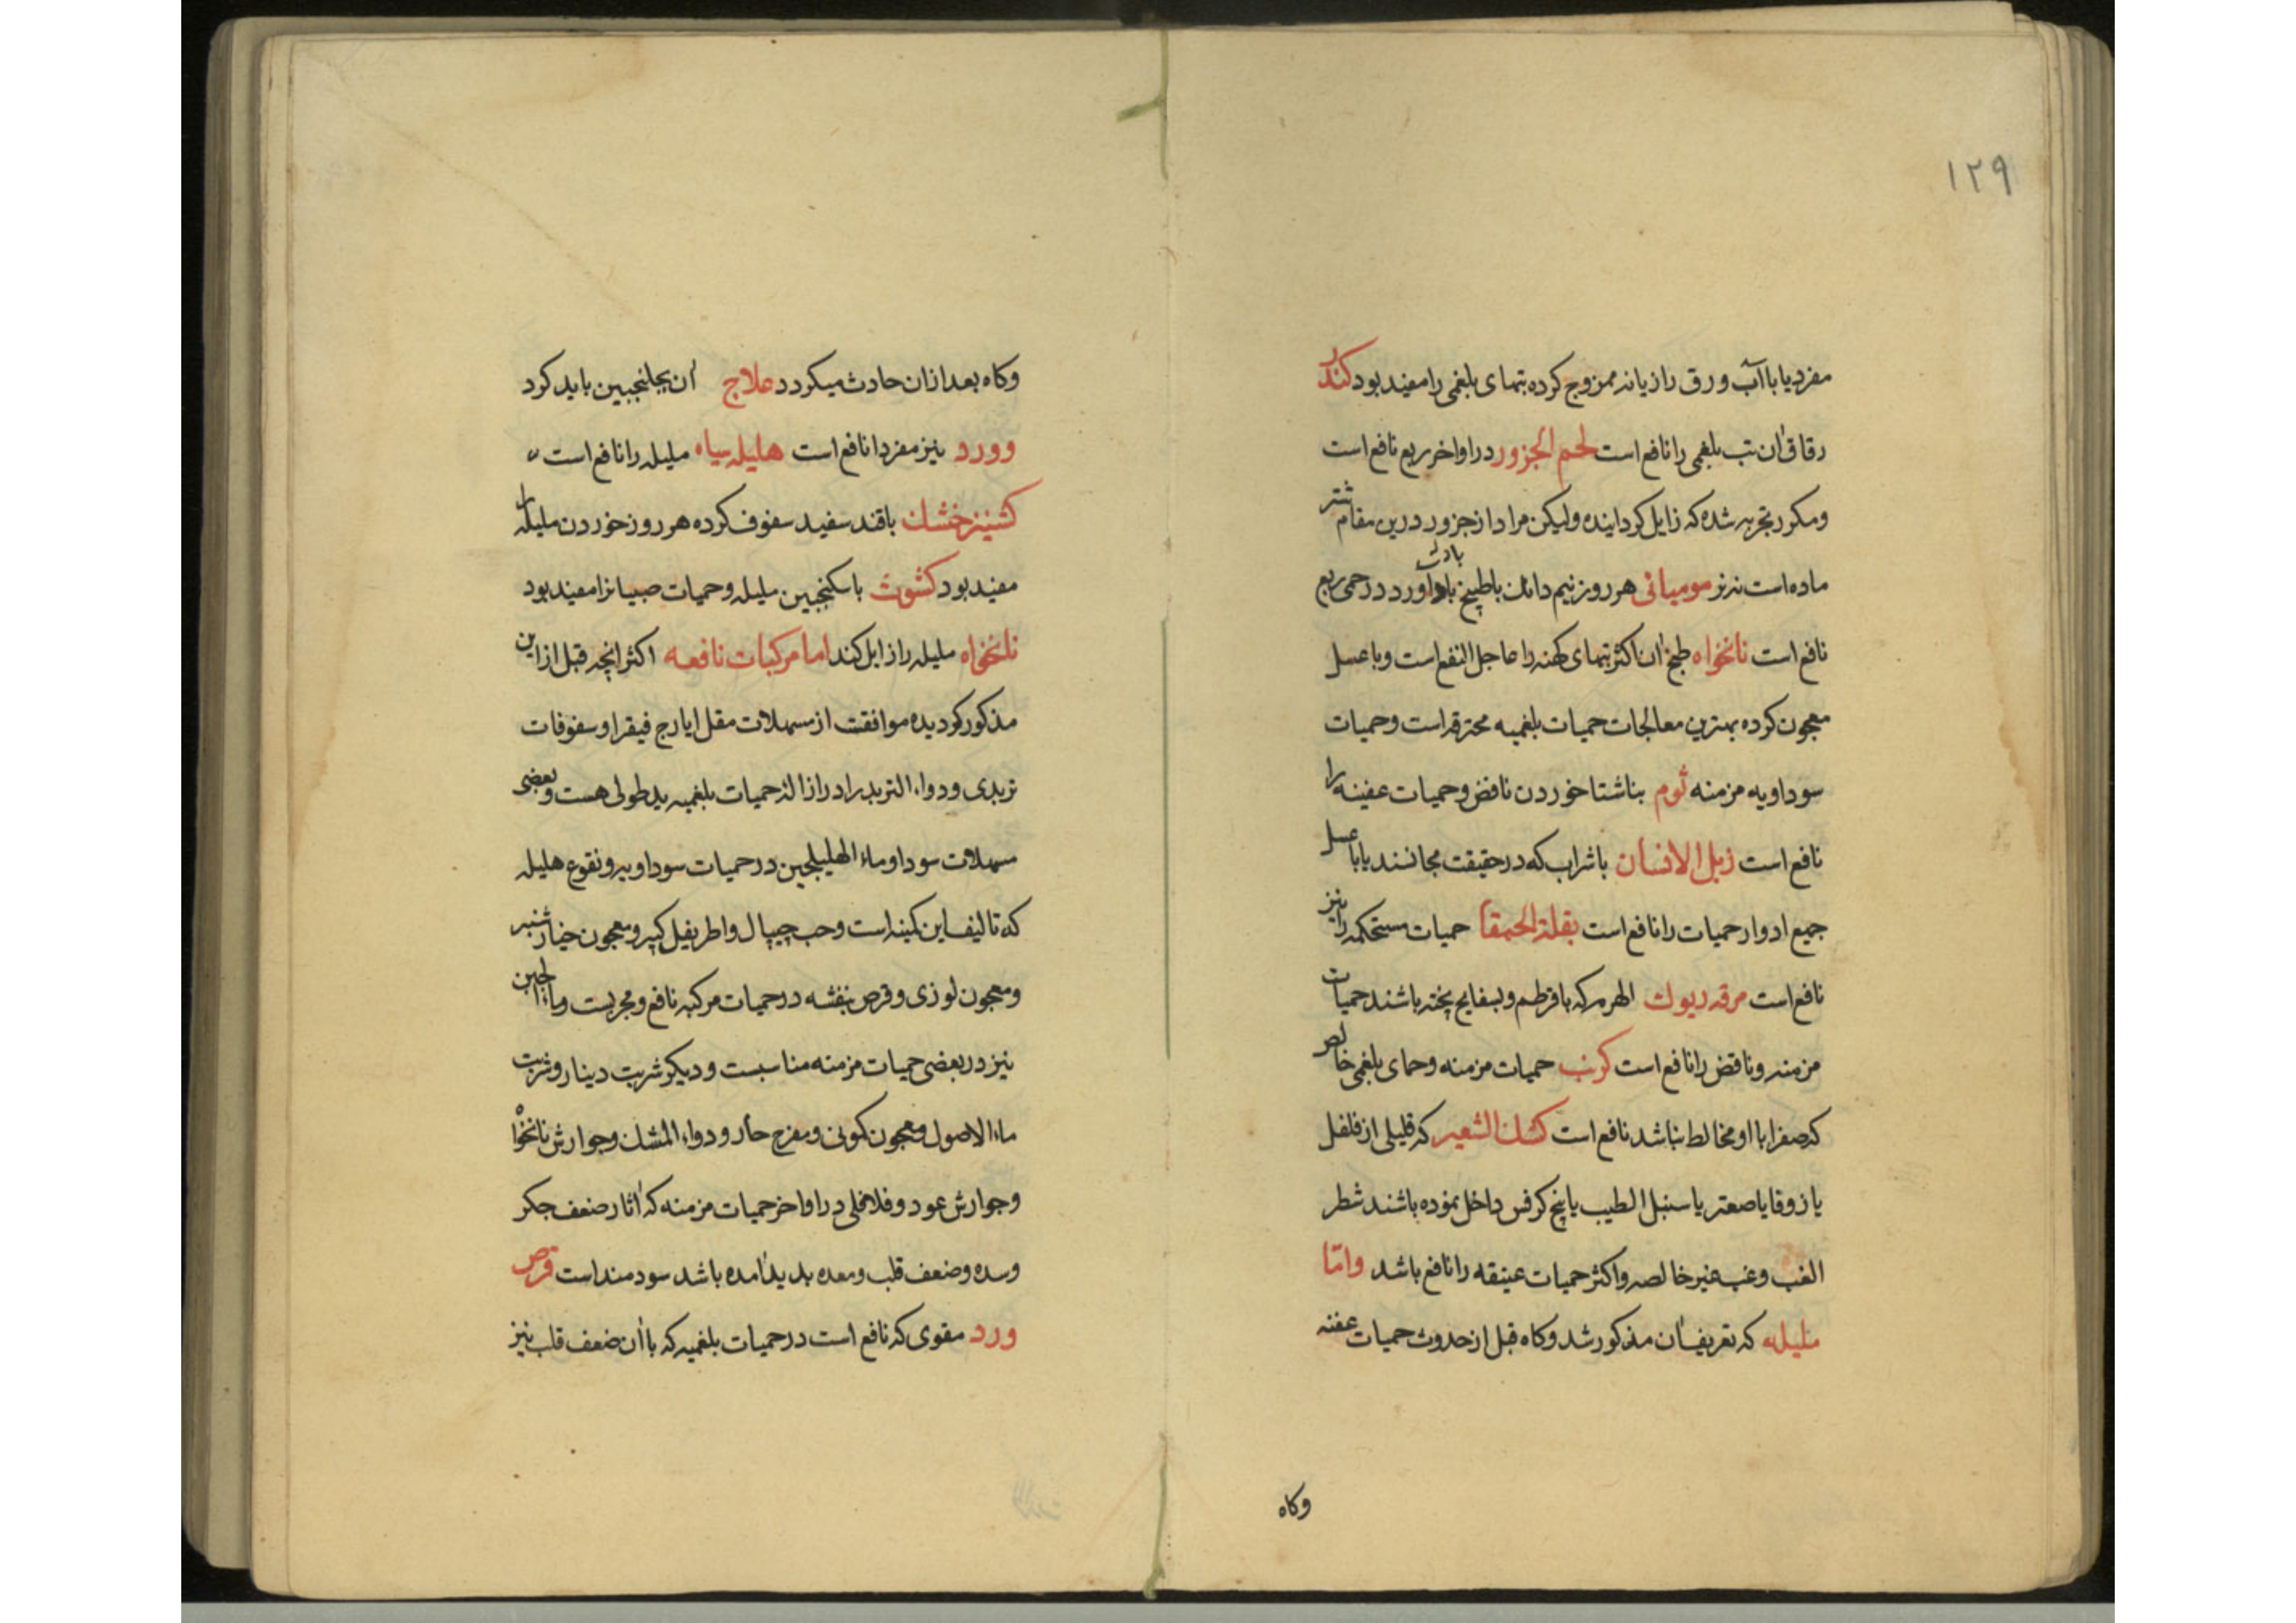 ۱۲۹
مفرد یا با آب ورق رازیانه ممزوج کرده تبهای بلغمی را مفید بود کندر
دقاق آن تب بلغمی را نافع است لحم الجزور در اواخر ربع نافع است
ومکرر تجربه شده که زایل کرداینده ولیکن مراد از جزور درین مقام شتر
ماده است نه نر مومیائی هر روز نیم دانک باطبیخ باداورد در حمی ربع
نافع است نانخواه طبخ آن اکثر تبهای کهنه را عاجل النفع است وبا عسل
معجون کرده بهترین معالجات حمیات بلغمیه محترقه است وحمیات
سوداویه مزمنه ثوم بناشتا خوردن نافض وحمیات عفینه را
نافع است زبل الانسان باشراب که در حقیقت مجانسند یا با عسل
جمیع ادوار حمیات را نافع است بقلة الحمقا حمیات مستحکمه را نیز
نافع است مرقه دیوک الهرمه که با قرطم وبسفایج پخته باشند حمیات
مزمنه وناقض را نافع است کرنب حمیات مزمنه وحمای بلغمی خالص
که صفرا با او مخالط نباشد نافع است کشک الشعیر که قلیلی از فلفل
یا زوفا یا صعتر یا سنبل الطیب یا بیخ کرفس داخل نموده باشند شطر
الغب وغب غیر خالصه واکثر حمیات عتیقه را نافع باشد وامّا
ملیله که تعریف آن مذکور شد وکاه قبل از حدوث حمیات عفنه
وکاه
وکاه بعد ازان حادث میکردد علاج آن بجلنجبین باید کرد
وورد نیز مفردا نافع است هلیله سیاه ملیله را نافع است
کشنیز خشک باقند سفید سفوف کرده هر روز خوردن ملیله را
مفید بود کشوث باسکنجبین ملیله وحمیات صبیانرا مفید بود
نانخواه ملیله را زایل کند اما مرکبات نافعه اکثر انچه قبل ازاین
مذکور کردیده موافقت از مسهلات مقل ایارج فیقرا وسفوفات
تربدی ودواء التربد را در ازالۀ حمیات بلغمیه ید طولی هست وبعضی
مسهلات سودا وماء الهلیلجین در حمیات سوداویه ونقوع هلیله
که تالیف این کمینه است وحب چیپال واطریفل کبیر ومعجون خیارشنبر
ومعجون لوزی وقرص بنفشه در حمیات مرکبه نافع ومجربست وماء الجبن
نیز در بعضی حمیات مزمنه مناسبست ودیکر شربت دینار وشربت
ماء الاصول ومعجون کمونی ومفرح حار ودواء المشک وجوارش نانخواه
وجوارش عود وفلافلی در اواخر حمیات مزمنه که آثار ضعف جکر
وسده وضعف قلب ومعده پدید آمده باشد سودمند است قرص
ورد مقوی که نافع است در حمیات بلغمیه که با آن ضعف قلب نیز